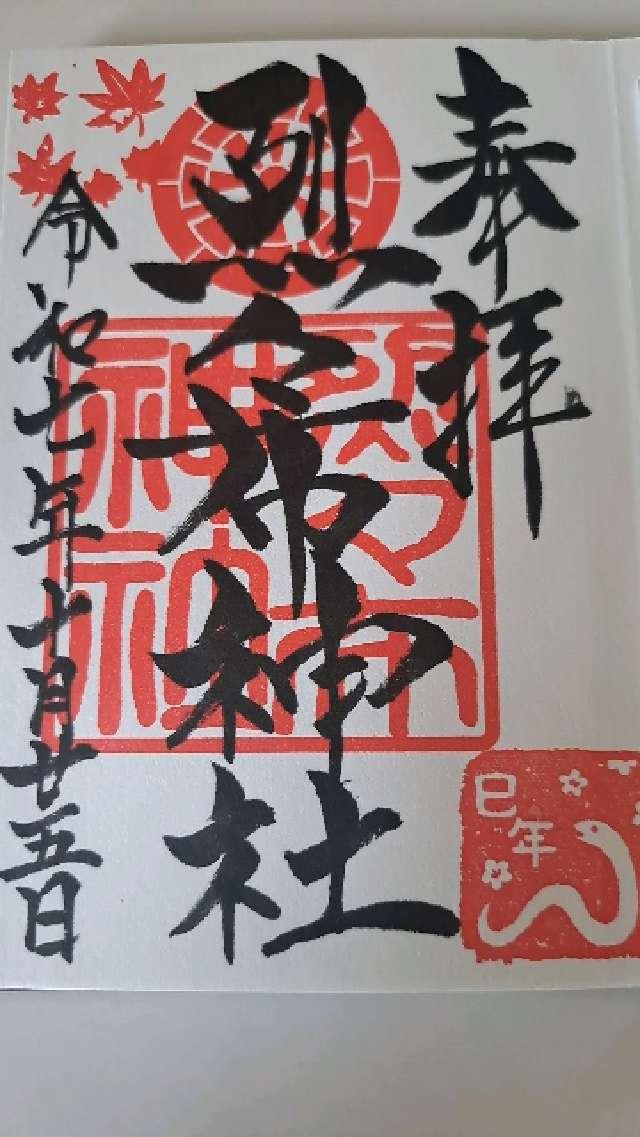 奉拝
烈々布神社
令和七年十月廿五日
烈々布
神社
巳年